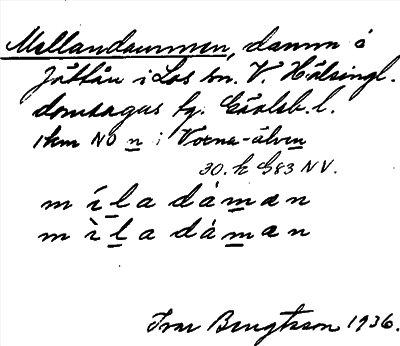 Mellandammen, damm å
Jättån i Los sn. V. Hälsingl.
domsagas tg. Gävleb. l.
1 km NO n i Voxna-älven
30. k G83 NV.
m í l a d á m a n
m ì l a d á m a n
Ivar Bengtsson 1936.